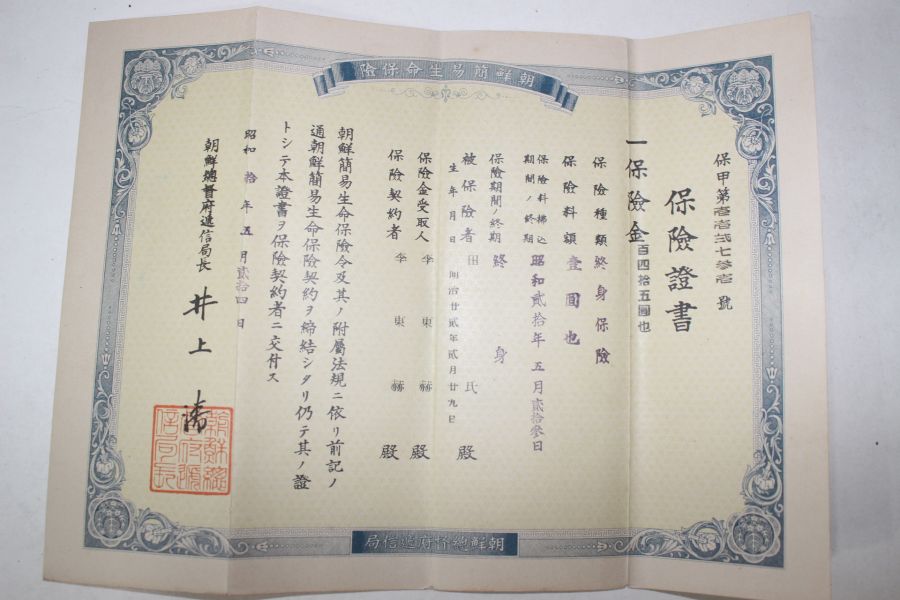 朝鮮簡易生命保險
保甲第壹壹貳七參壹號
保險證書
一保險金百四拾五圓也
保險種類 終身保險
保險料額 壹圓也
保險料拂込期間ノ終期 昭和貳拾年五月貳拾參日
保險期間ノ終期 終身
被保險者 田氏殿
生年月日 明治廿貳年貳月廿九日
保險金受取人 李東赫殿
保險契約者 李東赫殿
朝鮮簡易生命保險令及其ノ附屬法規ニ依リ前記ノ
通朝鮮簡易生命保險契約ヲ締結シタリ仍テ其ノ證
トシテ本證書ヲ保險契約者ニ交付ス
昭和拾年五月貳拾四日
朝鮮總督府遞信局長 井上清
朝鮮總督府遞信局長
朝鮮總督府遞信局